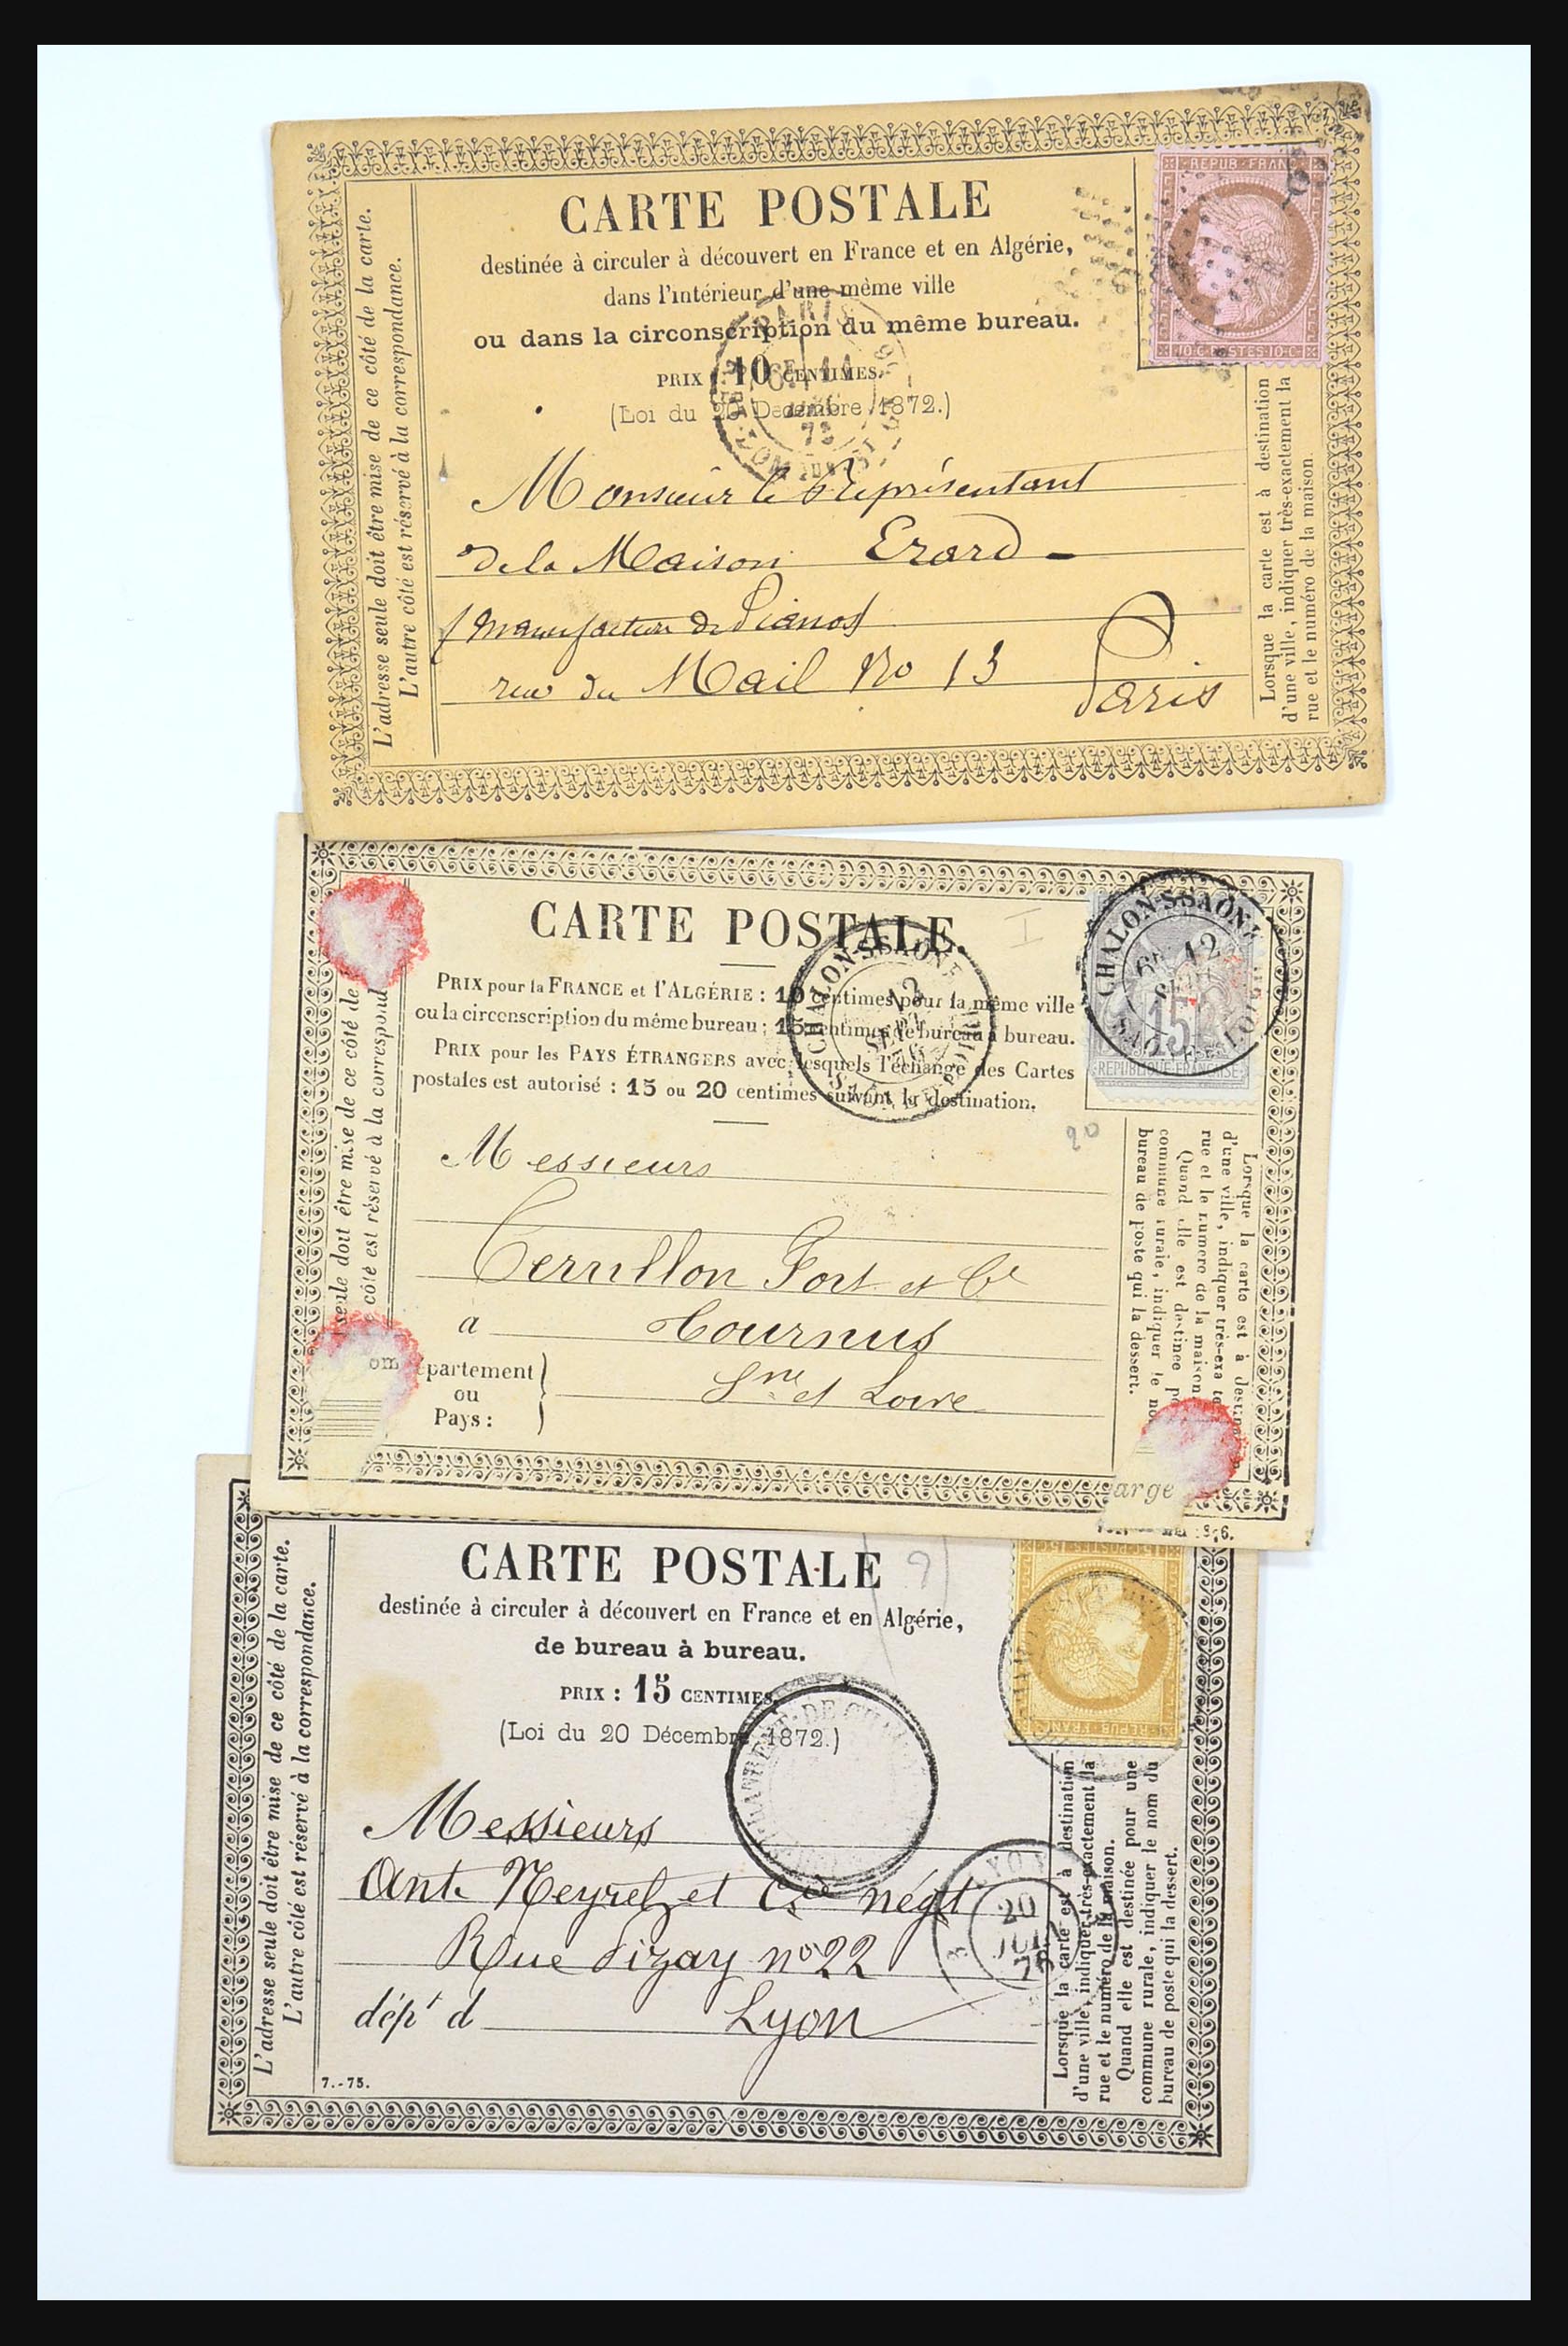 CARTE POSTALE
destinée à circuler à découvert en France et en Algérie,
dans l'intérieur d'une même ville
ou dans la circonscription du même bureau.
PRIX : 10 CENTIMES.
(Loi du 20 Décembre 1872.)
REPUB FRANC
10 C POSTES 10 C
PARIS
73
L'adresse seule doit être mise de ce côté de la carte.
L'autre côté est réservé à la correspondance.
Monsieur le Représentant
de la Maison Erard
manufacture de Pianos
rue du Mail No 13
Paris
Lorsque la carte est à destination
d'une ville, indiquer très-exactement la
rue et le numéro de la maison.
CARTE POSTALE.
PRIX pour la FRANCE et l'ALGÉRIE : 10 centimes pour la même ville
ou la circonscription du même bureau ; 15 centimes de bureau à bureau.
PRIX pour les PAYS ÉTRANGERS avec lesquels l'échange des Cartes
postales est autorisé : 15 ou 20 centimes suivant la destination.
CHALON-S-SAÔNE
12
SAÔNE-ET-LOIRE
15
REPUBLIQUE FRANCAISE
CHALON-S-SAÔNE
20
seule doit être mise de ce côté de
côté est réservé à la correspond
Messieurs
Terrillon Fort et Cie
à Tournus
Sne et Loire
épartement
ou
Pays :
Lorsque la carte est à destin
d'une ville, indiquer très-exa
rue et le numéro de la maison
Quand elle est destinée p
commune rurale, indiquer le no
bureau de poste qui la dessert.
arge
CARTE POSTALE
destinée à circuler à découvert en France et en Algérie,
de bureau à bureau.
PRIX : 15 CENTIMES.
(Loi du 20 Décembre 1872.)
15 C POSTES 15 C
REPUB FRANC
L'adresse seule doit être mise de ce côté de la carte.
L'autre côté est réservé à la correspondance.
Messieurs
Ant. Neyret et Cie négt
Rue Pizay no 22
dépt d Lyon
LYON
20
JUIL
76
7.-75.
Lorsque la carte est à destination
d'une ville, indiquer très-exactement la
rue et le numéro de la maison.
Quand elle est destinée pour une
commune rurale, indiquer le nom du
bureau de poste qui la dessert.